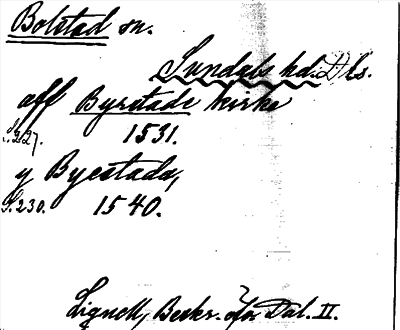 Bolstad sn.
Sundals hd. Dls.
aff Byrstade kirke
S. 227. 1531.
y Byestada,
S. 230. 1540.
Lignell, Beskr. öfv. Dal. II.